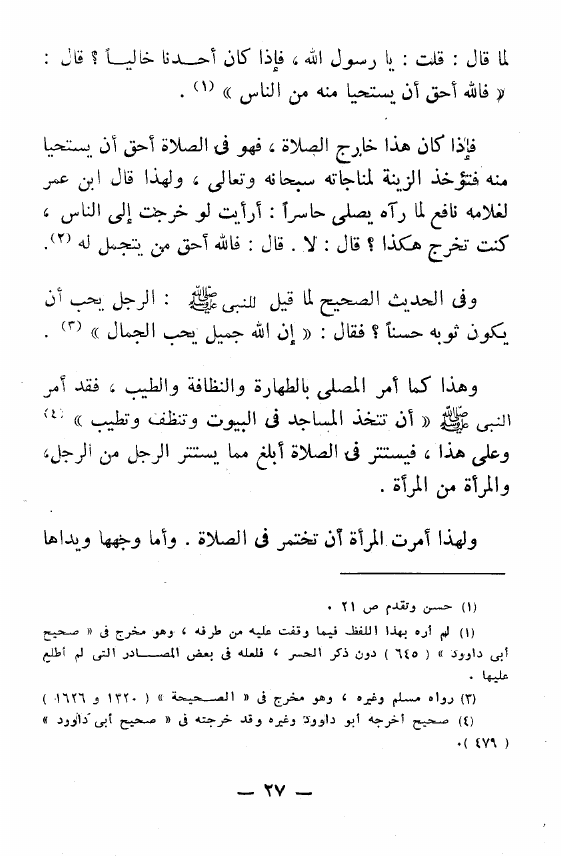 لما قال : قلت : يا رسول الله ، فإذا كان أحدنا خالياً ؟ قال :
« فالله أحق أن يستحيا منه من الناس » (١) .
فإذا كان هذا خارج الصلاة ، فهو فى الصلاة أحق أن يستحيا
منه فتؤخذ الزينة لمناجاته سبحانه وتعالى ، ولهذا قال ابن عمر
لغلامه نافع لما رآه يصلى حاسراً : أرأيت لو خرجت إلى الناس ،
كنت تخرج هكذا ؟ قال : لا . قال : فالله أحق من يتجمل له (٢).
وفى الحديث الصحيح لما قيل للنبى ﷺ : الرجل يحب أن
يكون ثوبه حسناً ؟ فقال : « إن الله جميل يحب الجمال » (٣) .
وهذا كما أمر المصلى بالطهارة والنظافة والطيب ، فقد أمر
النبى ﷺ « أن تتخذ المساجد فى البيوت وتنظف وتطيب » (٤)
وعلى هذا ، فيستتر فى الصلاة أبلغ مما يستتر الرجل من الرجل،
والمرأة من المرأة .
ولهذا أمرت المرأة أن تختمر فى الصلاة . وأما وجهها ويداها
(١) حسن وتقدم ص ٢١ .
(١) لم أره بهذا اللفظ فيما وقفت عليه من طرقه ، وهو مخرج فى « صحيح
أبى داوود » ( ٦٤٥ ) دون ذكر الحسر ، فلعله فى بعض المصادر التى لم أطلع
عليها .
(٣) رواه مسلم وغيره ، وهو مخرج فى « الصحيحة » ( ١٣٢٠ و ١٦٢٦ )
(٤) صحيح أخرجه أبو داوود وغيره وقد خرجته فى « صحيح أبى داوود »
( ٤٧٩ ).
— ٢٧ —